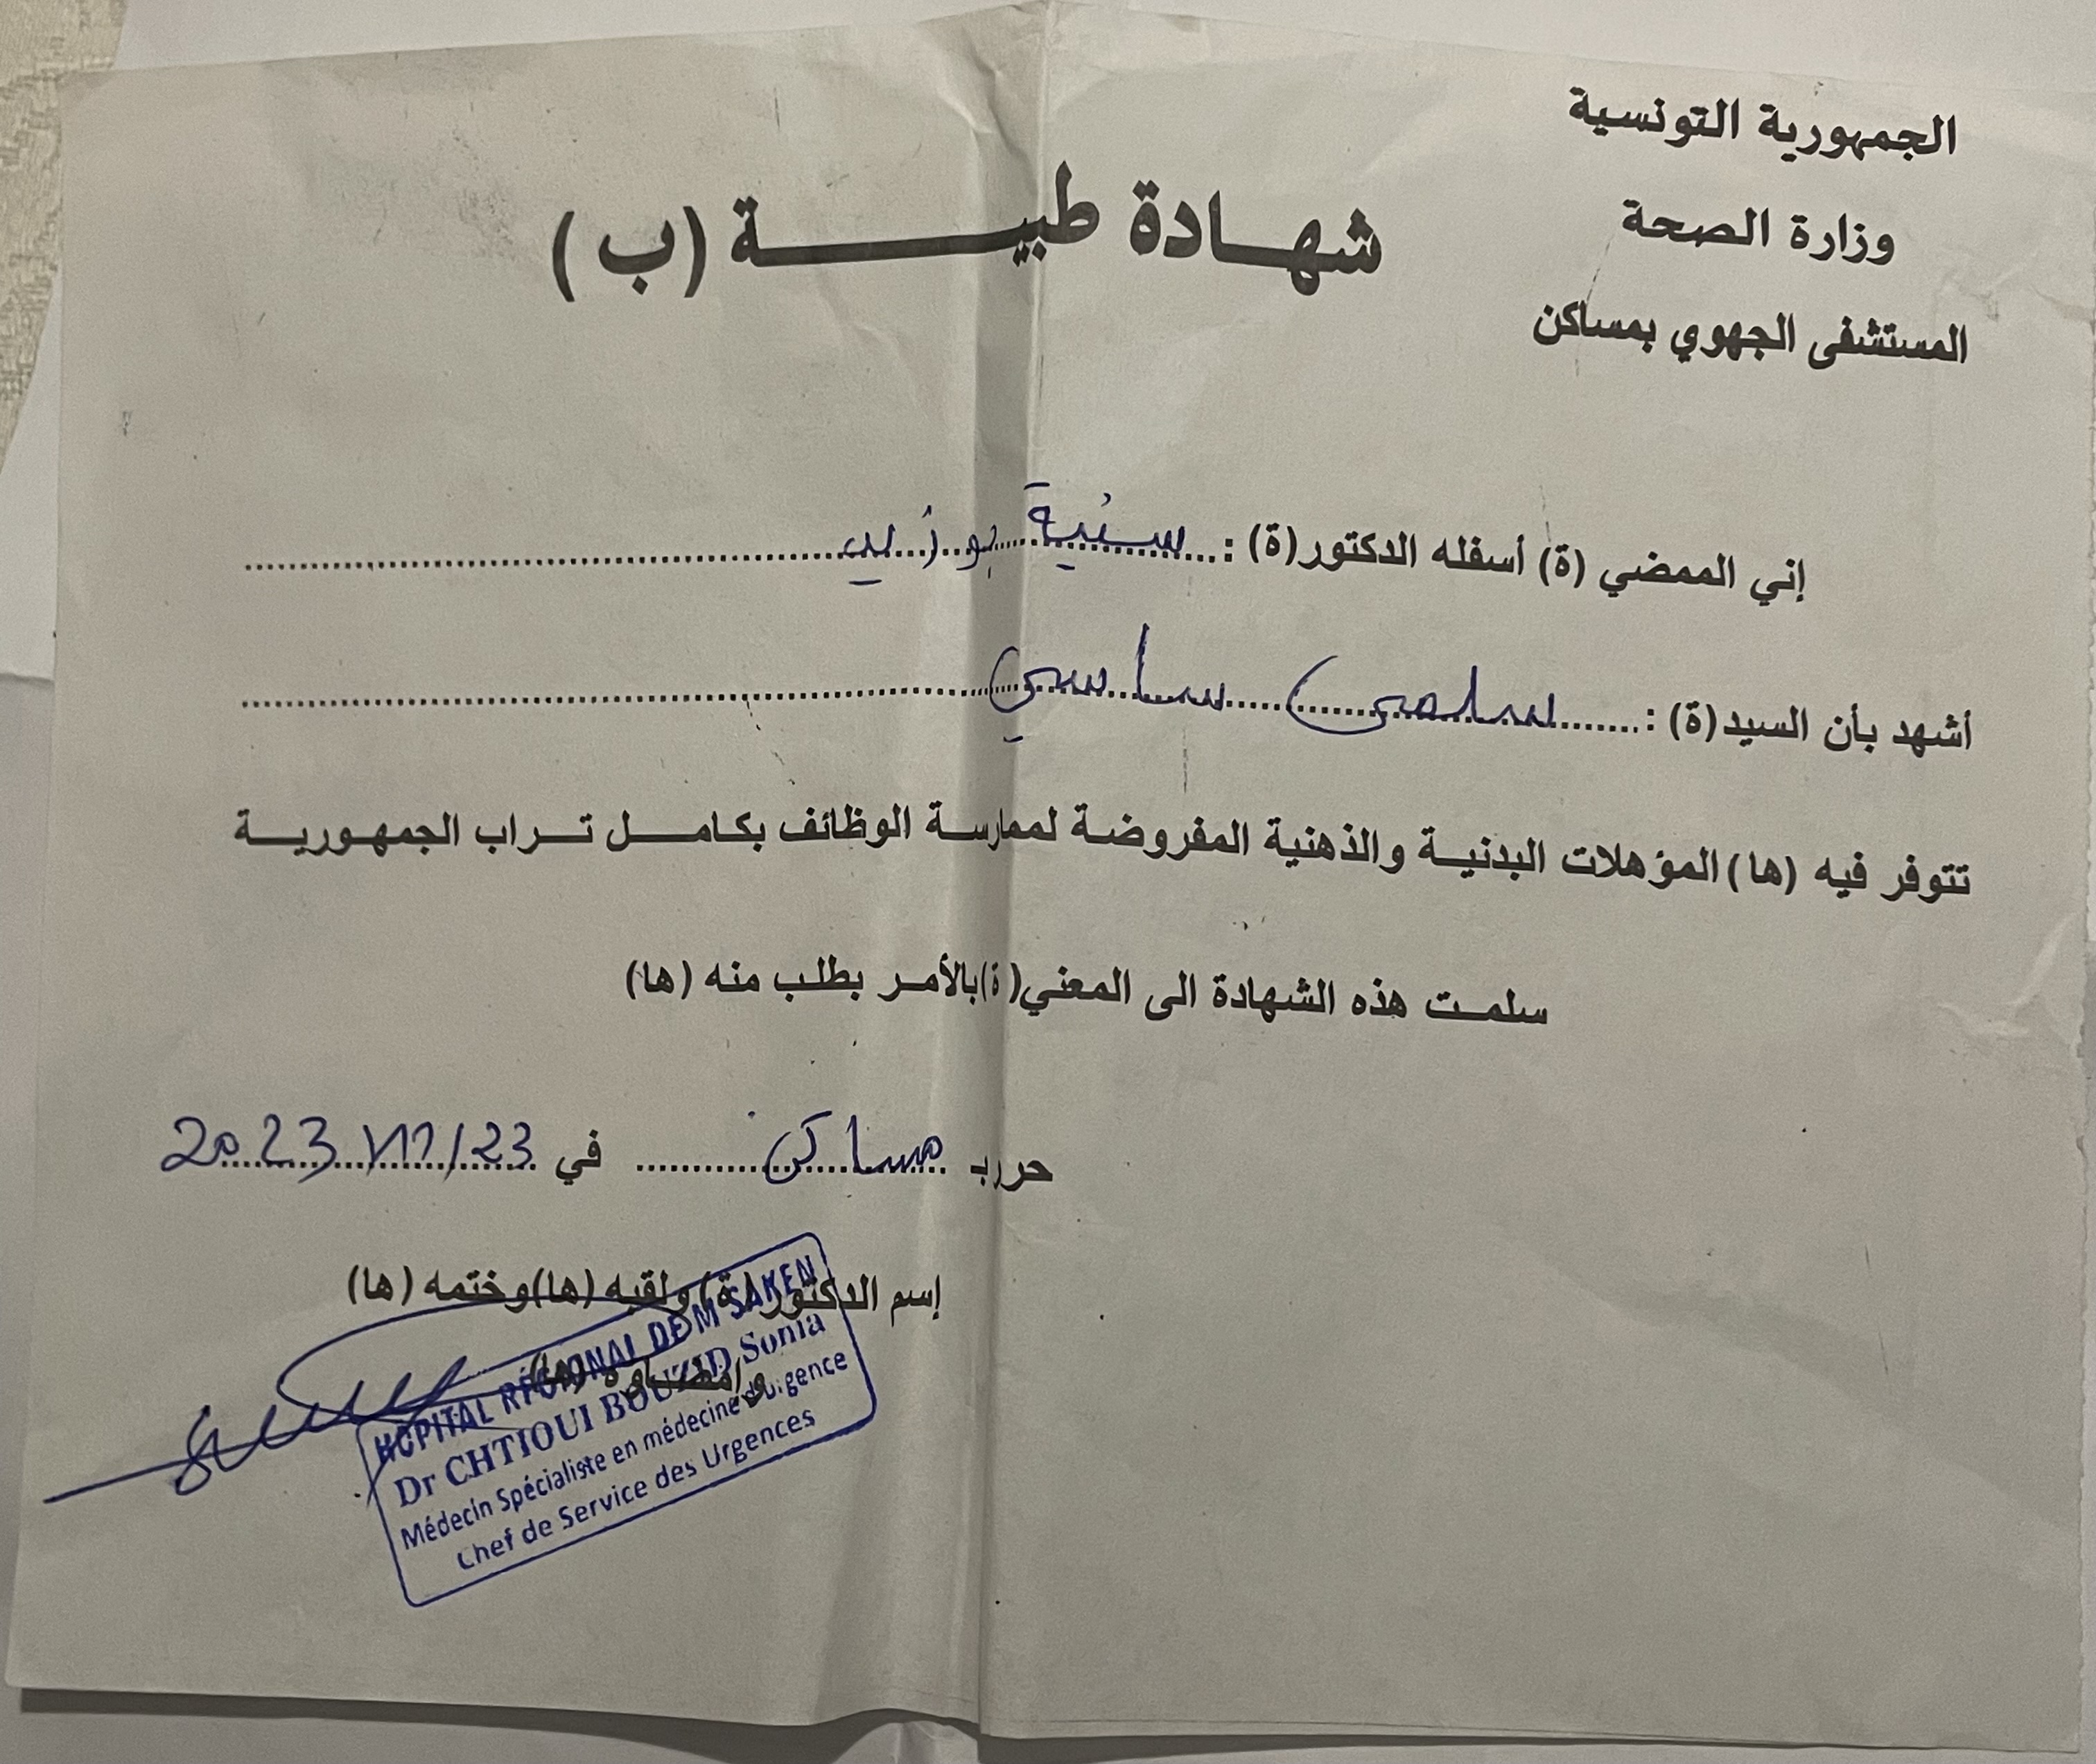 الجمهورية التونسية
وزارة الصحة
المستشفى الجهوي بمساكن
شهادة طبية (ب)
إني الممضي (ة) أسفله الدكتور(ة) : سنية
أشهد بأن السيد(ة) : سلمى ساسي
تتوفر فيه (ها) المؤهلات البدنية والذهنية المفروضة لممارسة الوظائف بكامل تراب الجمهورية
سلمت هذه الشهادة الى المعني(ة)بالأمر بطلب منه (ها)
حرر بـ مساكن في 2023/11/23
إسم الدكتور(ة) ولقبه (ها)وختمه (ها)
وإمضاؤه (ها)
HOPITAL RÉGIONAL DE M'SAKEN
Dr CHTIOUI BOUZID Sonia
Médecin Spécialiste en médecine d'urgence
Chef de Service des Urgences